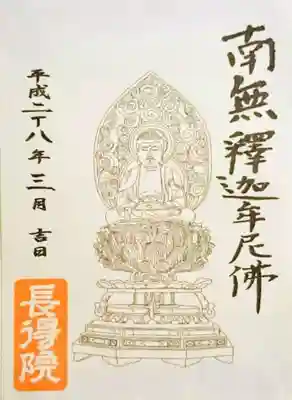 南無釋迦牟尼佛
平成二十八年三月吉日
長得院